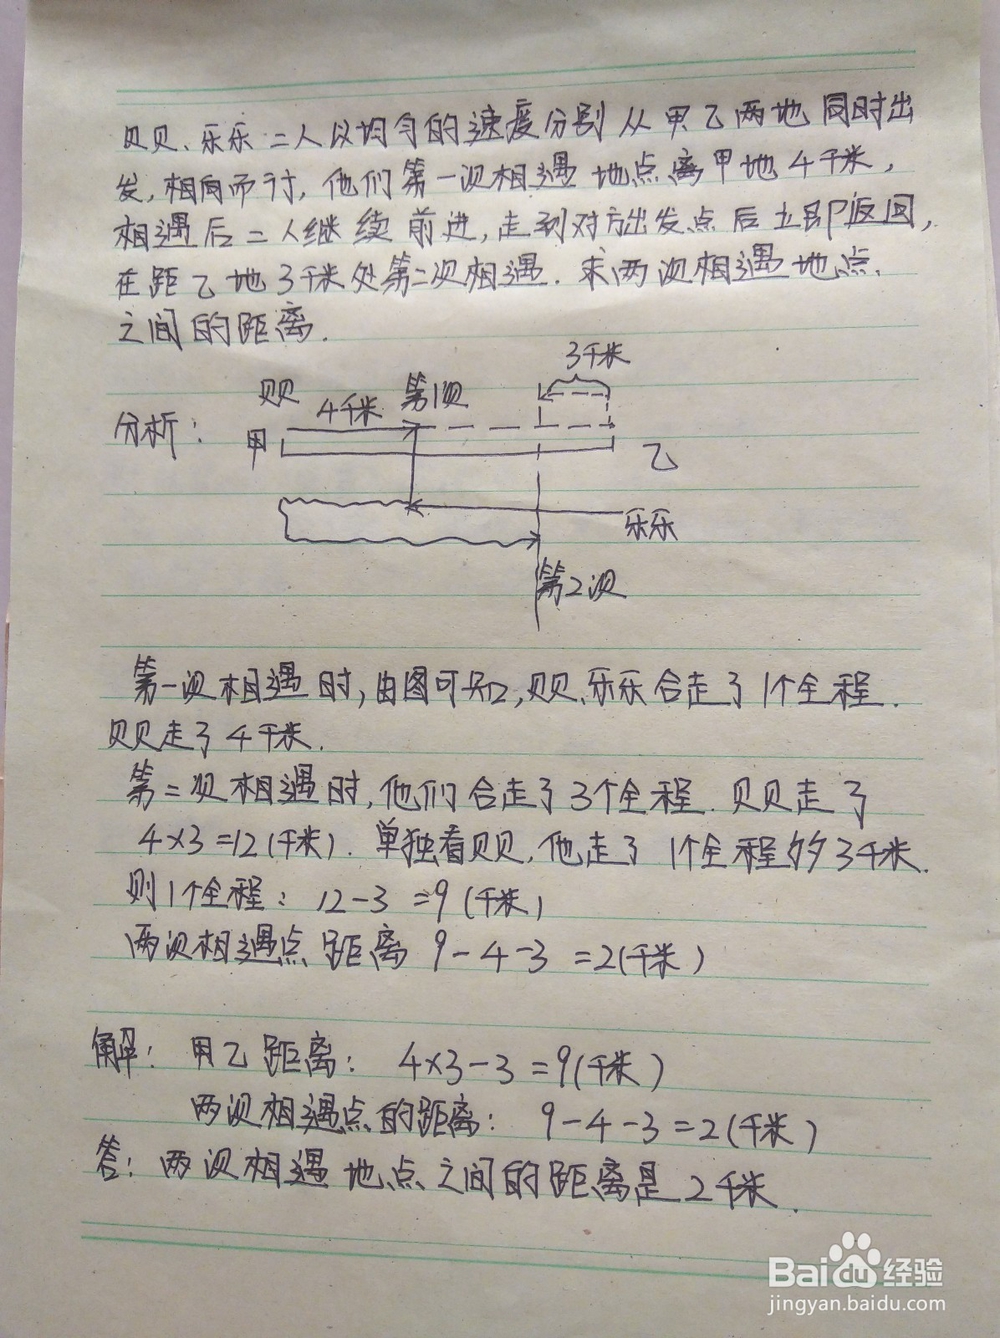 贝贝、乐乐二人以均匀的速度分别从甲乙两地同时出
发,相向而行,他们第一次相遇地点离甲地4千米,
相遇后二人继续前进,走到对方出发点后立即返回,
在距乙地3千米处第二次相遇.求两次相遇地点
之间的距离.
3千米
贝贝
4千米
第1次
分析:
甲
乙
乐乐
第2次
第一次相遇时,由图可知,贝贝、乐乐合走了1个全程.
贝贝走了4千米.
第二次相遇时,他们合走了3个全程.贝贝走了
4×3=12(千米).单独看贝贝,他走了1个全程多3千米.
则1个全程:12-3=9(千米)
两次相遇点距离9-4-3=2(千米)
解:甲乙距离:4×3-3=9(千米)
两次相遇点的距离:9-4-3=2(千米)
答:两次相遇地点之间的距离是2千米.
Baidu经验
jingyan.baidu.com